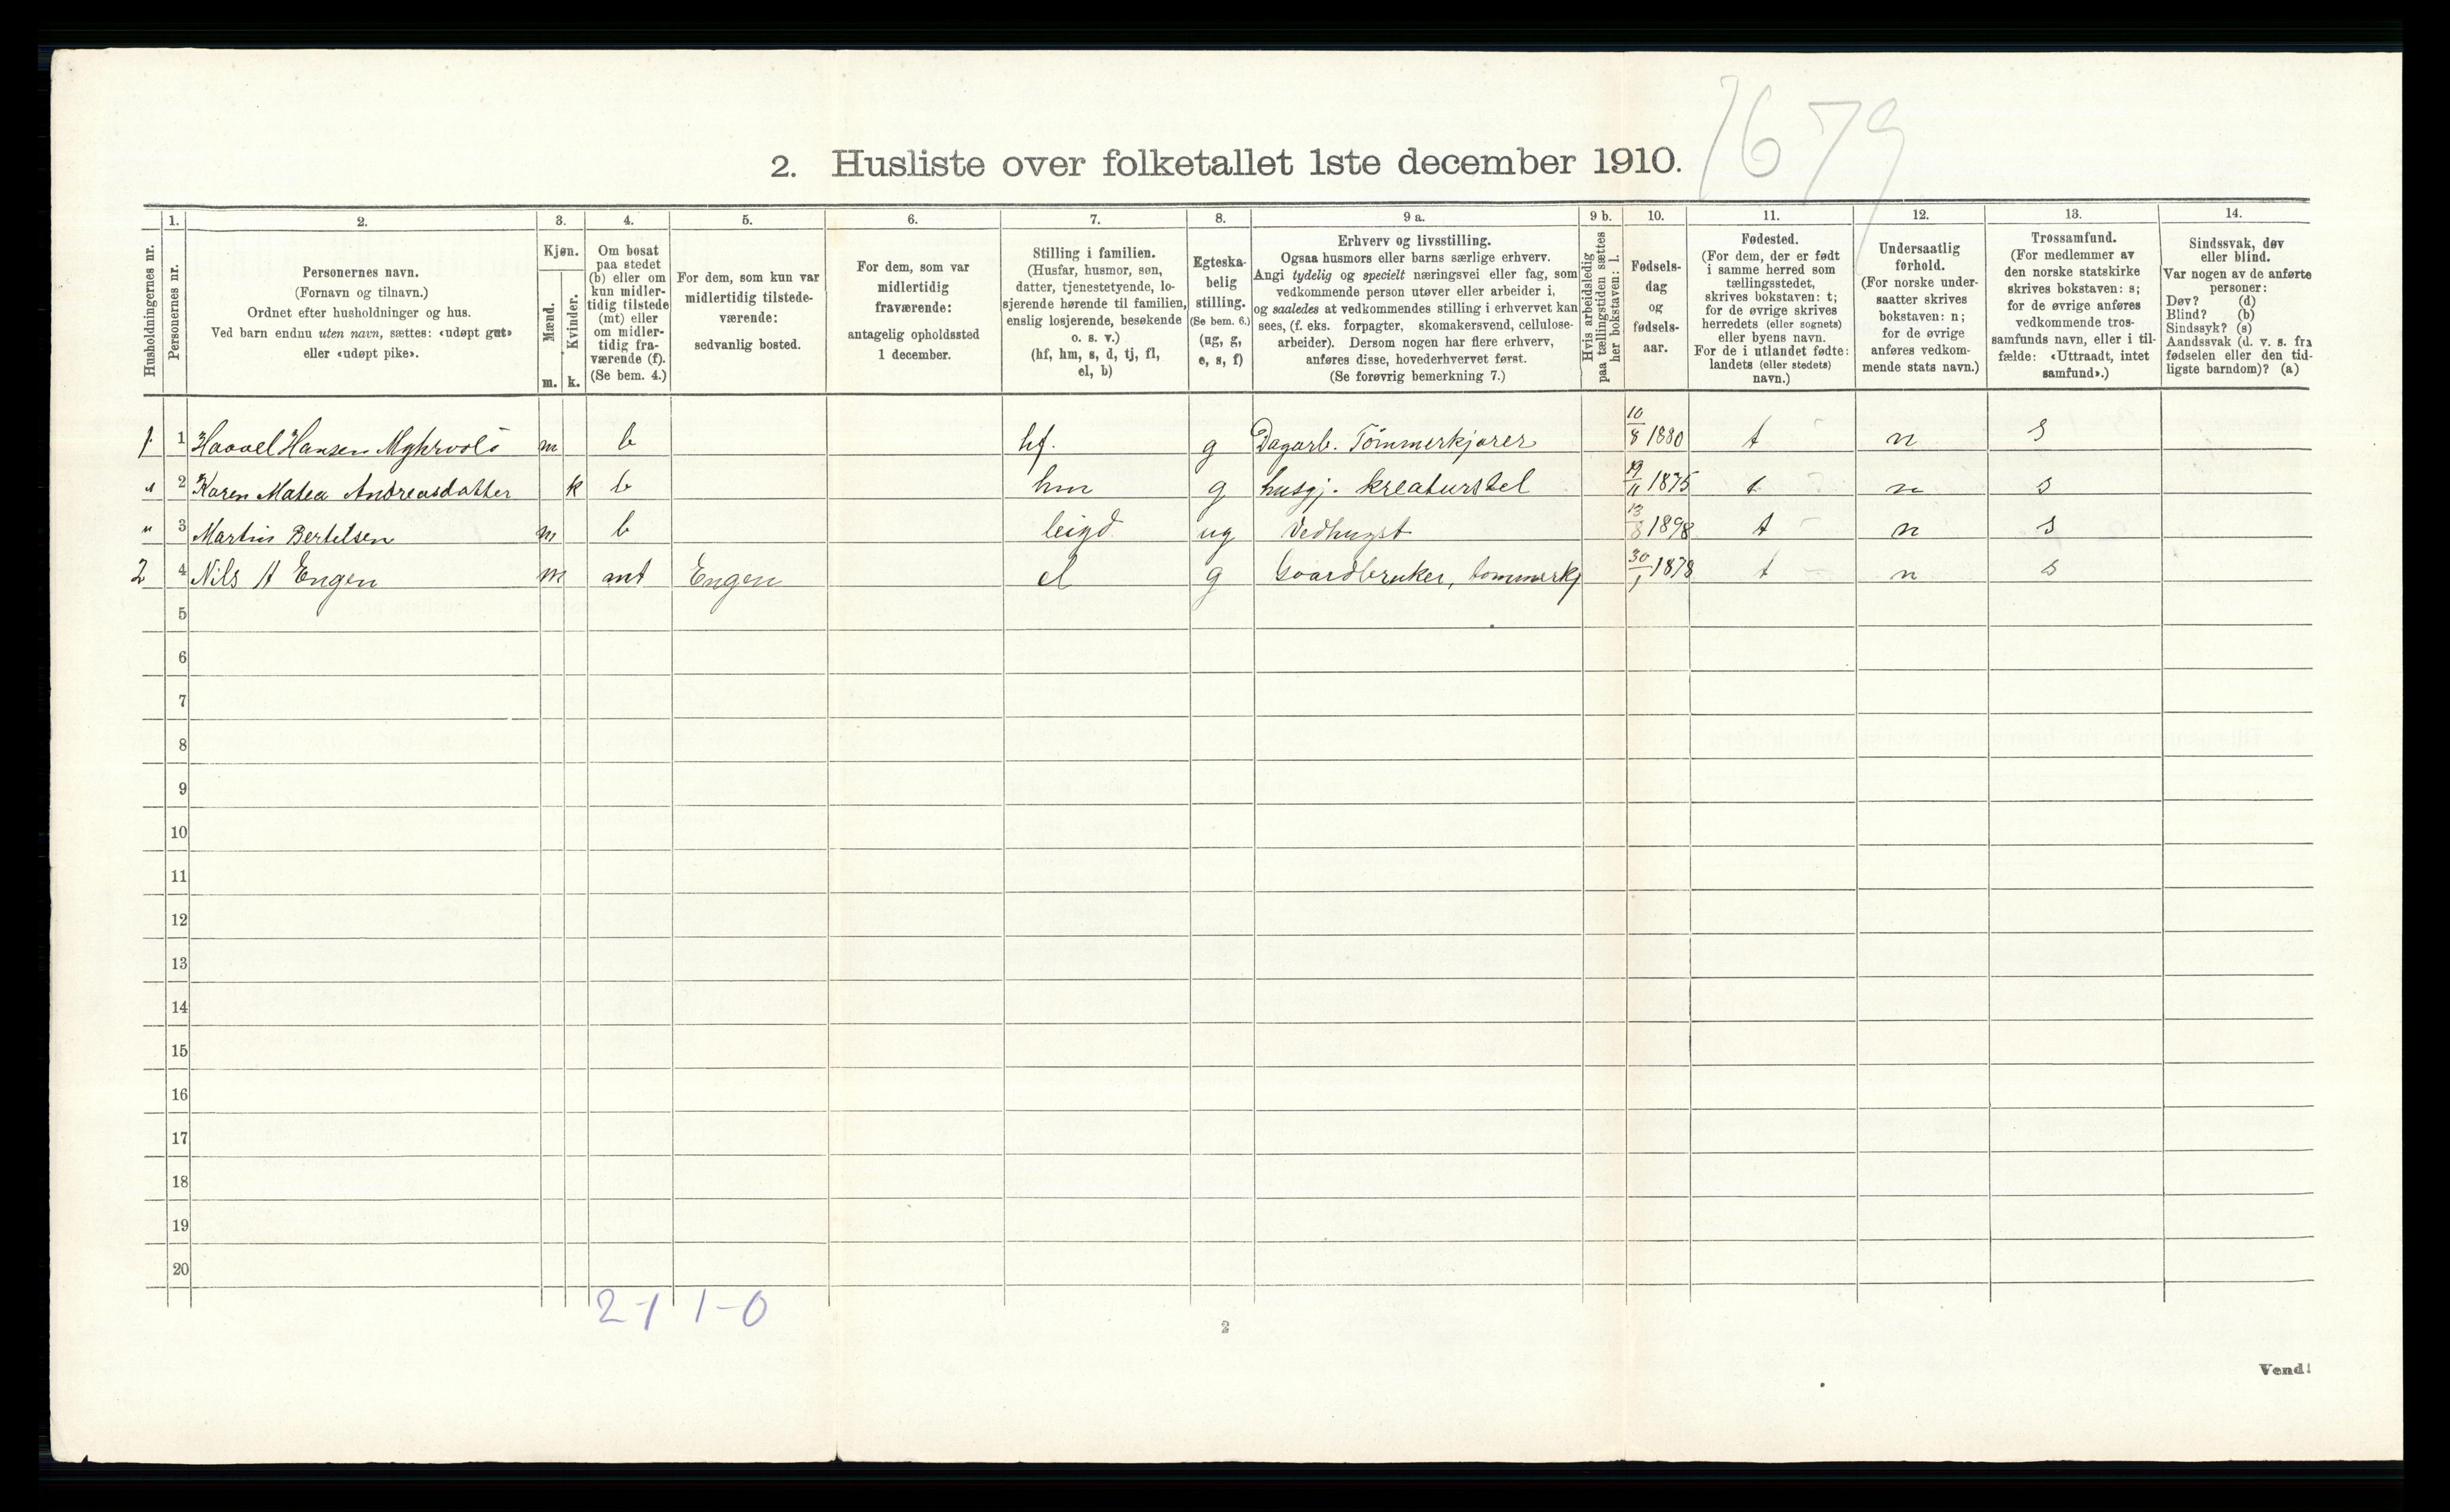 1679
2. Husliste over folketallet 1ste december 1910.
Husholdningernes nr.
1. Personernes nr.
2.
Personernes navn.
(Fornavn og tilnavn.)
Ordnet efter husholdninger og hus.
Ved barn endnu uten navn, sættes: «udøpt gut»
eller «udøpt pike».
3.
Kjøn.
Mænd. Kvinder.
m. k.
4.
Om bosat
paa stedet
(b) eller om
kun midler-
tidig tilstede
(mt) eller
om midler-
tidig fra-
værende (f).
(Se bem. 4.)
5.
For dem, som kun var
midlertidig tilstede-
værende:
sedvanlig bosted.
6.
For dem, som var
midlertidig
fraværende:
antagelig opholdssted
1 december.
7.
Stilling i familien.
(Husfar, husmor, søn,
datter, tjenestetyende, lo-
sjerende hørende til familien,
enslig losjerende, besøkende
o. s. v.)
(hf, hm, s, d, tj, fl,
el, b)
8.
Egteska-
belig
stilling.
(Se bem. 6.)
(ug, g,
e, s, f)
9 a.
Erhverv og livsstilling.
Ogsaa husmors eller barns særlige erhverv.
Angi tydelig og specielt næringsvei eller fag, som
vedkommende person utøver eller arbeider i,
og saaledes at vedkommendes stilling i erhvervet kan
sees, (f. eks. forpagter, skomakersvend, cellulose-
arbeider). Dersom nogen har flere erhverv,
anføres disse, hovederhvervet først.
(Se forøvrig bemerkning 7.)
9 b.
Hvis arbeidsledig
paa tællingstiden sættes
her bokstaven: l.
10.
Fødsels-
dag
og
fødsels-
aar.
11.
Fødested.
(For dem, der er født
i samme herred som
tællingsstedet,
skrives bokstaven: t;
for de øvrige skrives
herredets (eller sognets)
eller byens navn.
For de i utlandet fødte:
landets (eller stedets)
navn.)
12.
Undersaatlig
forhold.
(For norske under-
saatter skrives
bokstaven: n;
for de øvrige
anføres vedkom-
mende stats navn.)
13.
Trossamfund.
(For medlemmer av
den norske statskirke
skrives bokstaven: s;
for de øvrige anføres
vedkommende tros-
samfunds navn, eller i til-
fælde: «Uttraadt, intet
samfund».)
14.
Sindssvak, døv
eller blind.
Var nogen av de anførte
personer:
Døv? (d)
Blind? (b)
Sindssyk? (s)
Aandssvak (d. v. s. fra
fødselen eller den tid-
ligste barndom)? (a)
1. 1 Haavel Hansen Myhrvold m b hf. g Dagarb. Tømmerkjører 10/8 1880 t n s
" 2 Karen Matea Andreasdatter k b hm g husgj. kreaturstel 19/11 1875 t n s
" 3 Martin Bertelsen m b leigd ug Vedhugst 13/8 1898 t n s
2 4 Nils H Engen m mt Engen el g Gaardbruker, tømmerkj 30/1 1878 t n s
5
6
7
8
9
10
11
12
13
14
15
16
17
18
19
20
2-1 1-0
2
Vend!